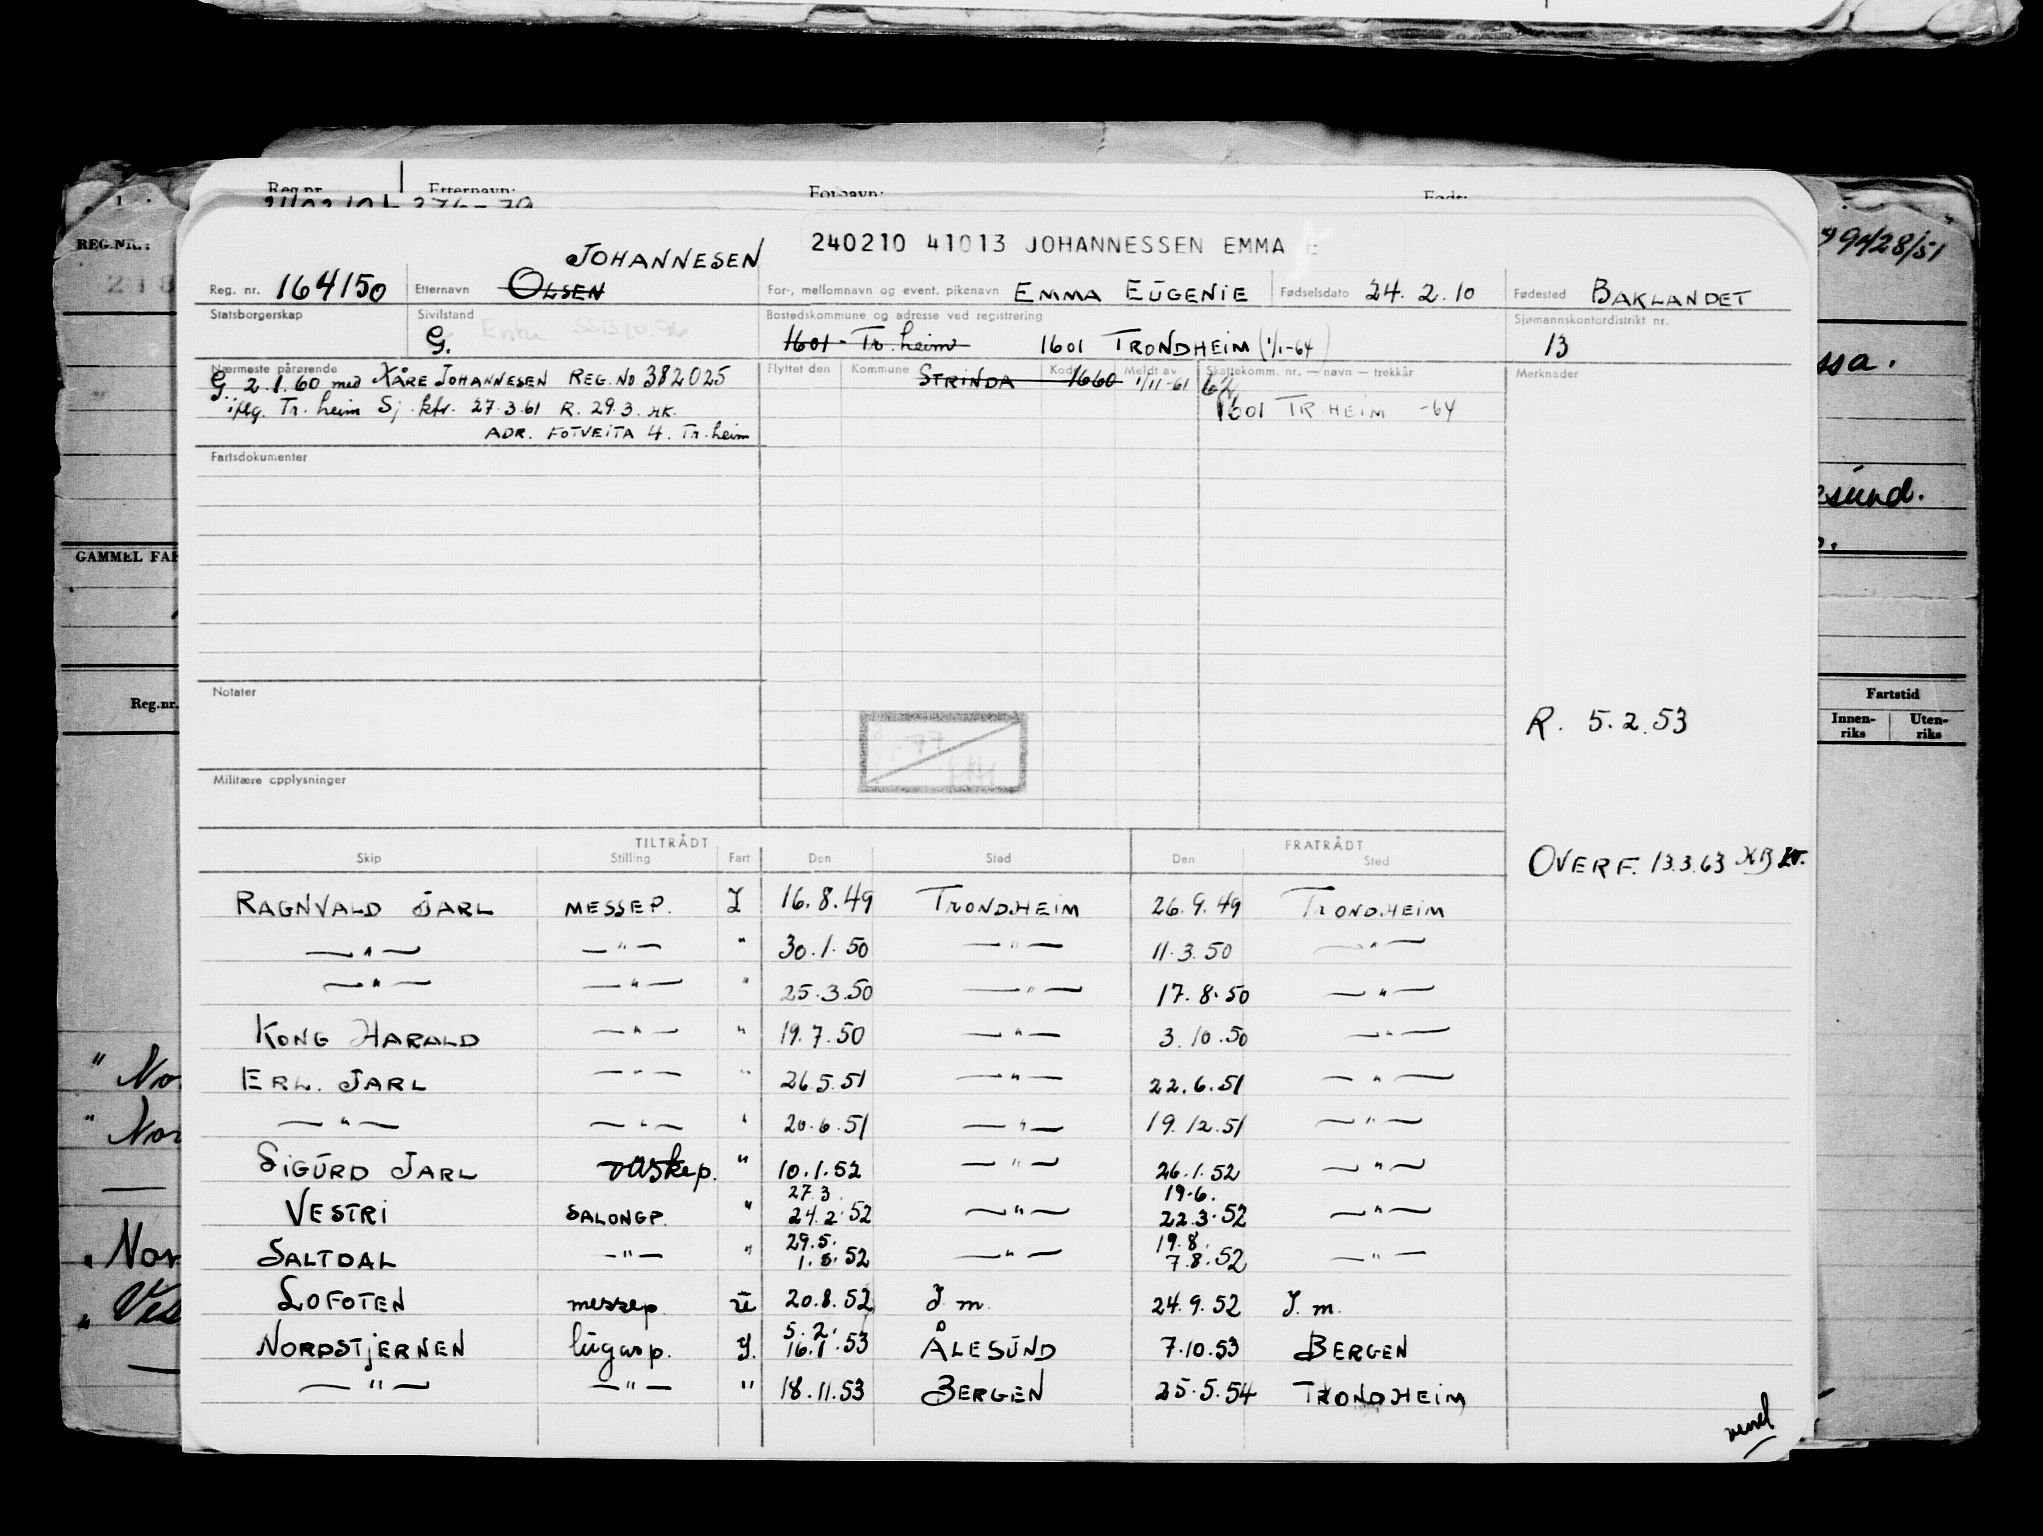 Reg.nr. Etternavn: Fornavn: Født:
REG.NR.:
99428/51
240210 41013 JOHANNESSEN EMMA E
JOHANNESEN
Reg. nr. 164150 Etternavn OLSEN For-, mellomnavn og event. pikenavn EMMA EUGENIE Fødselsdato 24. 2. 10 Fødested BAKLANDET
Statsborgerskap Sivilstand G. Enke Bostedskommune og adresse ved registrering Sjømannskontordistrikt nr.
1601 - Tr. heim 1601 TRONDHEIM (1/1-64) 13
Nærmeste pårørende Flyttet den Kommune STRINDA Kode 1660 Meldt av 1/11-61 Skattekomm. nr. — navn — trekkår 62 Merknader
G. 2.1.60 med KÅRE JOHANNESEN REG. NO 382025
iflg. Tr. heim Sj. ktr. 27.3.61 R. 29.3. HK. 1601 TR. HEIM -64
ADR. FOTVEITA 4. Tr. heim
Fartsdokumenter
esund.
GAMMEL
Reg.nr.
Notater
Fartstid
Innen-riks Uten-riks
R. 5.2.53
Militære opplysninger
TILTRÅDT FRATRÅDT
Skip Stilling Fart Den Sted Den Sted
OVERF. 13.3.63
RAGNVALD JARL MESSEP. I 16.8.49 TRONDHEIM 26.9.49 TRONDHEIM
—"— —"— " 30.1.50 —"— 11.3.50 —"—
—"— —"— " 25.3.50 —"— 17.8.50 —"—
KONG HARALD —"— " 19.7.50 —"— 3.10.50 —"—
ERL. JARL —"— " 26.5.51 —"— 22.6.51 —"—
—"— —"— " 20.6.51 —"— 19.12.51 —"—
SIGURD JARL vaskep. " 10.1.52 —"— 26.1.52 —"—
27.3. 19.6.
VESTRI SALONGP. " 24.2.52 —"— 22.3.52 —"—
29.5. 19.8.
SALTDAL —"— " 1.8.52 —"— 7.8.52 —"—
LOFOTEN messep. U 20.8.52 J. m. 24.9.52 J. m.
5.2.
NORDSTJERNEN lugarp. I. 16.1.53 ÅLESUND 7.10.53 BERGEN
—"— —"— " 18.11.53 BERGEN 25.5.54 TRONDHEIM
vend